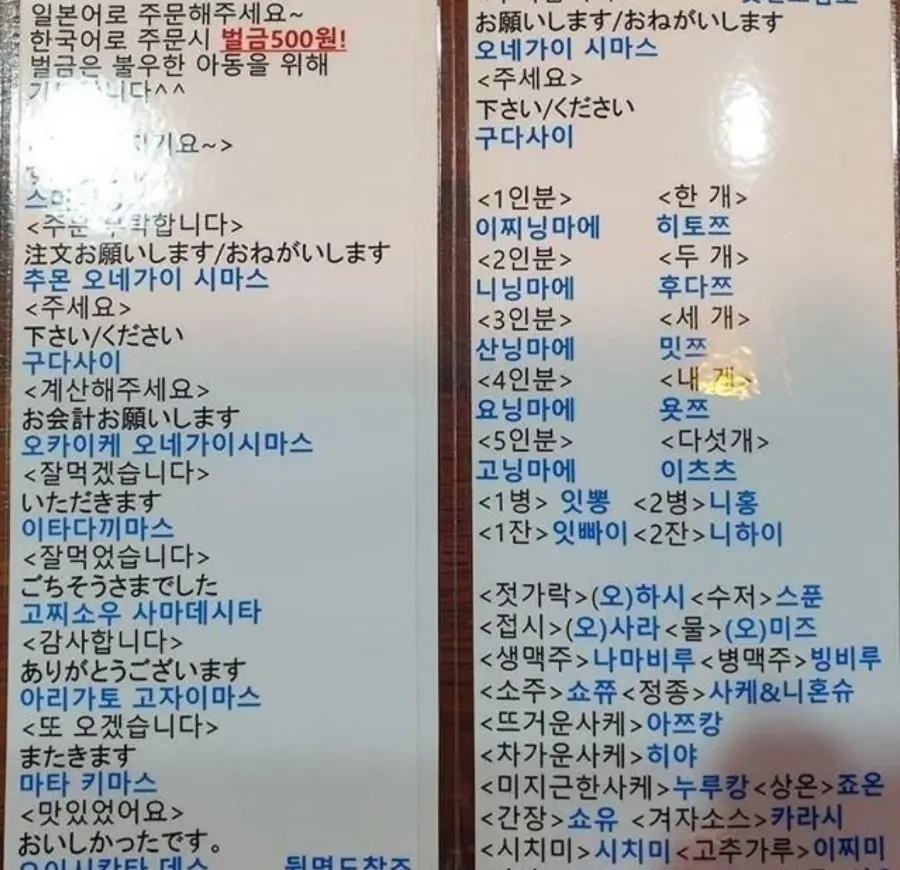 일본어로 주문해주세요~
한국어로 주문시 벌금500원!
벌금은 불우한 아동을 위해
<주문 부탁합니다>
注文お願いします/おねがいします
추몬 오네가이 시마스
<주세요>
下さい/ください
구다사이
<계산해주세요>
お会計お願いします
오카이케 오네가이시마스
<잘먹겠습니다>
いただきます
이타다끼마스
<잘먹었습니다>
ごちそうさまでした
고찌소우 사마데시타
<감사합니다>
ありがとうございます
아리가토 고자이마스
<또 오겠습니다>
またきます
마타 키마스
<맛있었어요>
おいしかったです。
오이시캇타 데스 뒷면도참조
お願いします/おねがいします
오네가이 시마스
<주세요>
下さい/ください
구다사이
<1인분> <한 개>
이찌닝마에 히토쯔
<2인분> <두 개>
니닝마에 후다쯔
<3인분> <세 개>
산닝마에 밋쯔
<4인분> <내 게>
요닝마에 욧쯔
<5인분> <다섯개>
고닝마에 이츠츠
<1병> 잇뽕 <2병>니홍
<1잔>잇빠이<2잔>니하이
<젓가락>(오)하시<수저>스푼
<접시>(오)사라<물>(오)미즈
<생맥주>나마비루<병맥주>빙비루
<소주>쇼쮸<정종>사케&니혼슈
<뜨거운사케>아쯔캉
<차가운사케>히야
<미지근한사케>누루캉<상온>죠온
<간장>쇼유 <겨자소스>카라시
<시치미>시치미<고추가루>이찌미